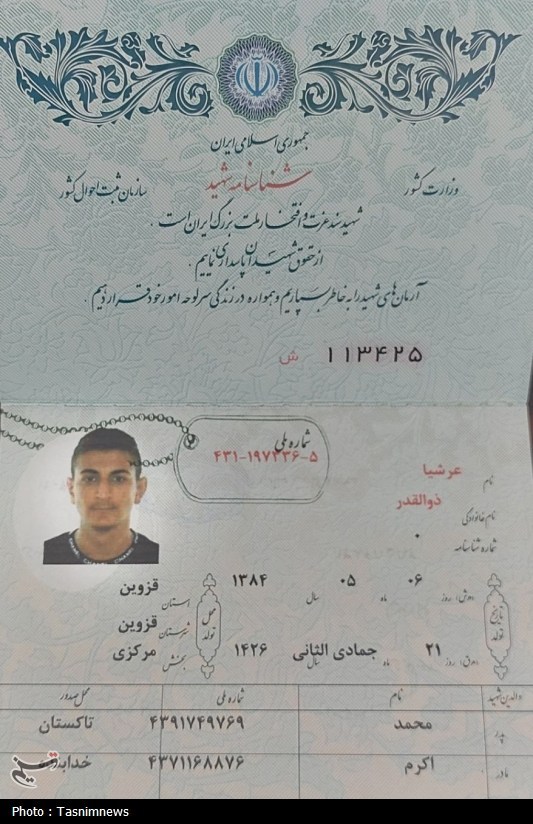 جمهوری اسلامی ایران
وزارت کشور
شناسنامه شهید
سازمان ثبت احوال کشور
شهید سند عزت و افتخار ملت بزرگ ایران است .
از حقوق شهیدان پاسداری نماییم .
آرمان‌های شهید را به خاطر بسپاریم و همواره در زندگی سرلوحه امور خود قرار دهیم .
ش ۱۱۳۴۲۵
شماره ملی
۴۳۱-۱۹۷۲۳۶-۵
نام عرشیا
نام خانوادگی ذوالقدر
شماره شناسنامه ۰
تاریخ تولد
روز ۰۶ ماه ۰۵ سال ۱۳۸۴
روز ۲۱ ماه جمادی الثانی سال ۱۴۲۶
محل تولد
استان قزوین
شهرستان قزوین
بخش مرکزی
والدین شهید نام شماره ملی محل صدور
پدر محمد ۴۳۹۱۷۴۹۷۶۹ تاکستان
مادر اکرم ۴۳۷۱۱۶۸۸۷۶
Photo : Tasnimnews